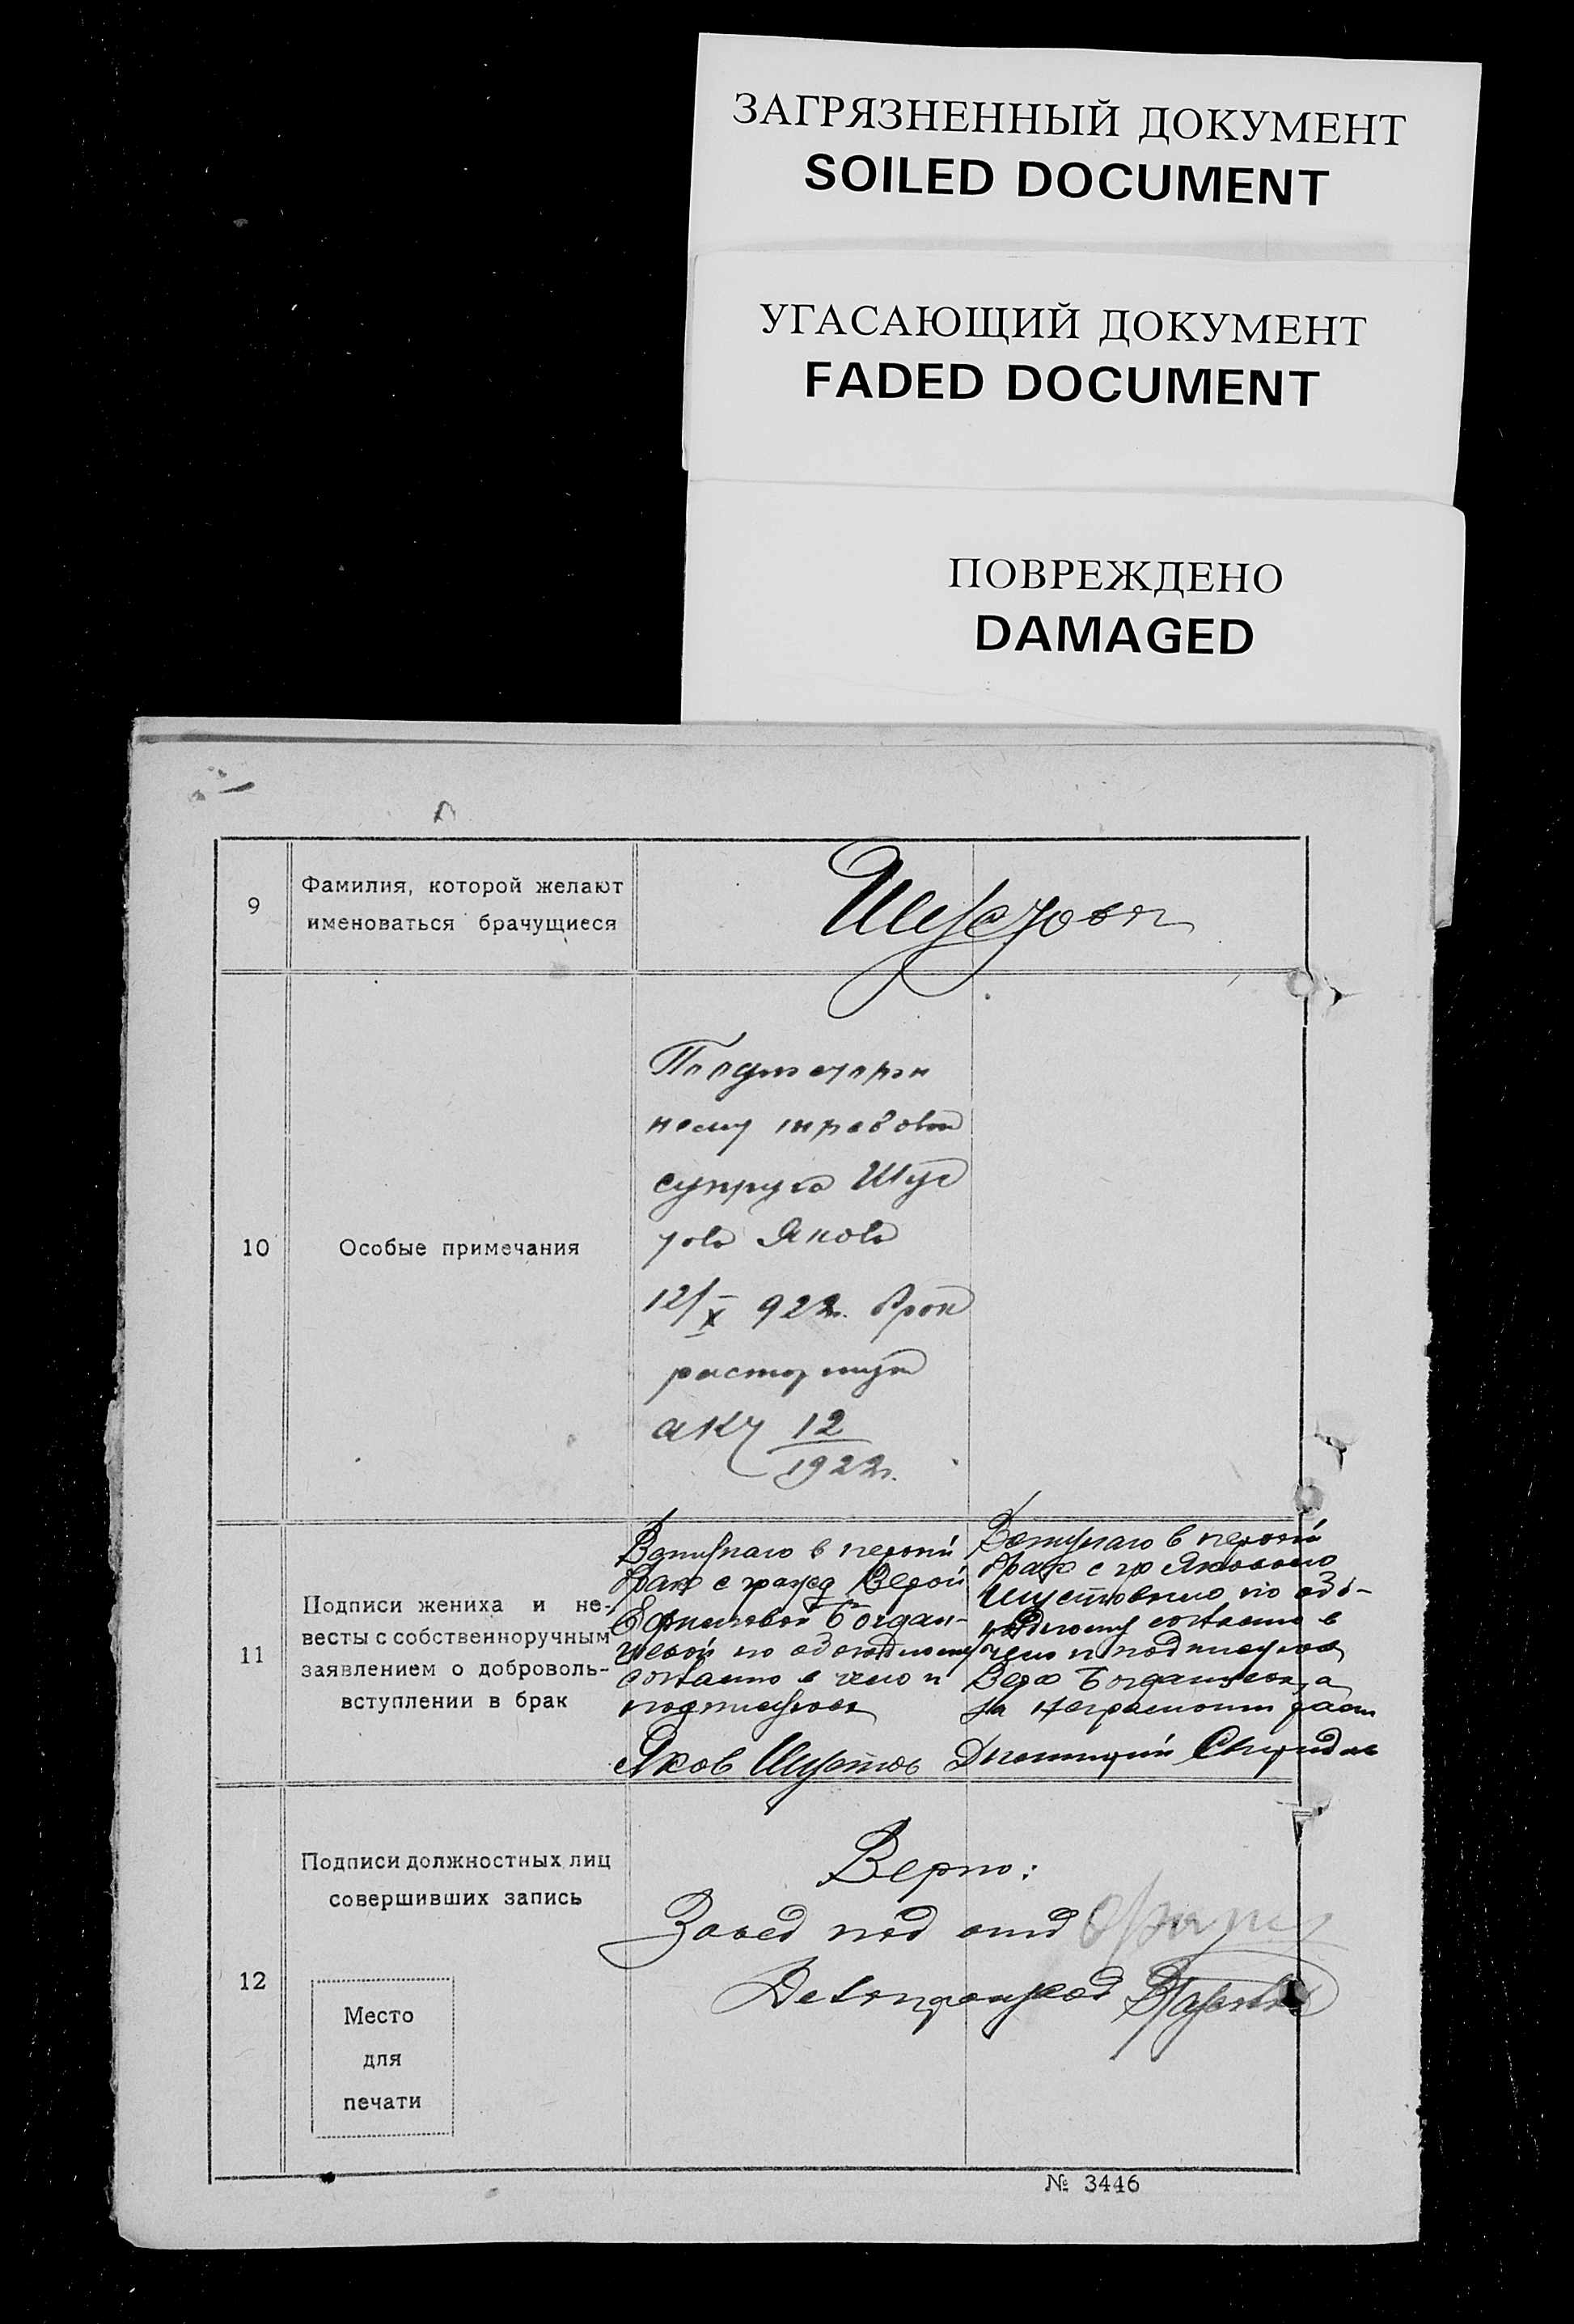 ЗАГРЯЗНЕННЫЙ ДОКУМЕНТ
SOILED DOCUMENT
УГАСАЮЩИЙ ДОКУМЕНТ
FADED DOCUMENT
ПОВРЕЖДЕНО
DAMAGED
9
Фамилия, которой желают
именоваться брачущиеся
10
Особые примечания
супруга Шус
това Якова
12/X 922г. брак
расторгнут
акт 12
1922г.
11
Подписи жениха и не-
весты с собственноручным
заявлением о доброволь-
вступлении в брак
Вступаю в первый
брак с гражд Верой
Богдан-
по обоюдному
согласию в чем и
подписуюсь
Яков Шустов
Вступаю в первый
брак с гр Яковом
Шустовым по обо-
юдному согласию в
чем и подписуюсь
Вера
12
Подписи должностных лиц
совершивших запись
Место
для
печати
Верно:
Завед под отд
Делопроизвод
№ 3446